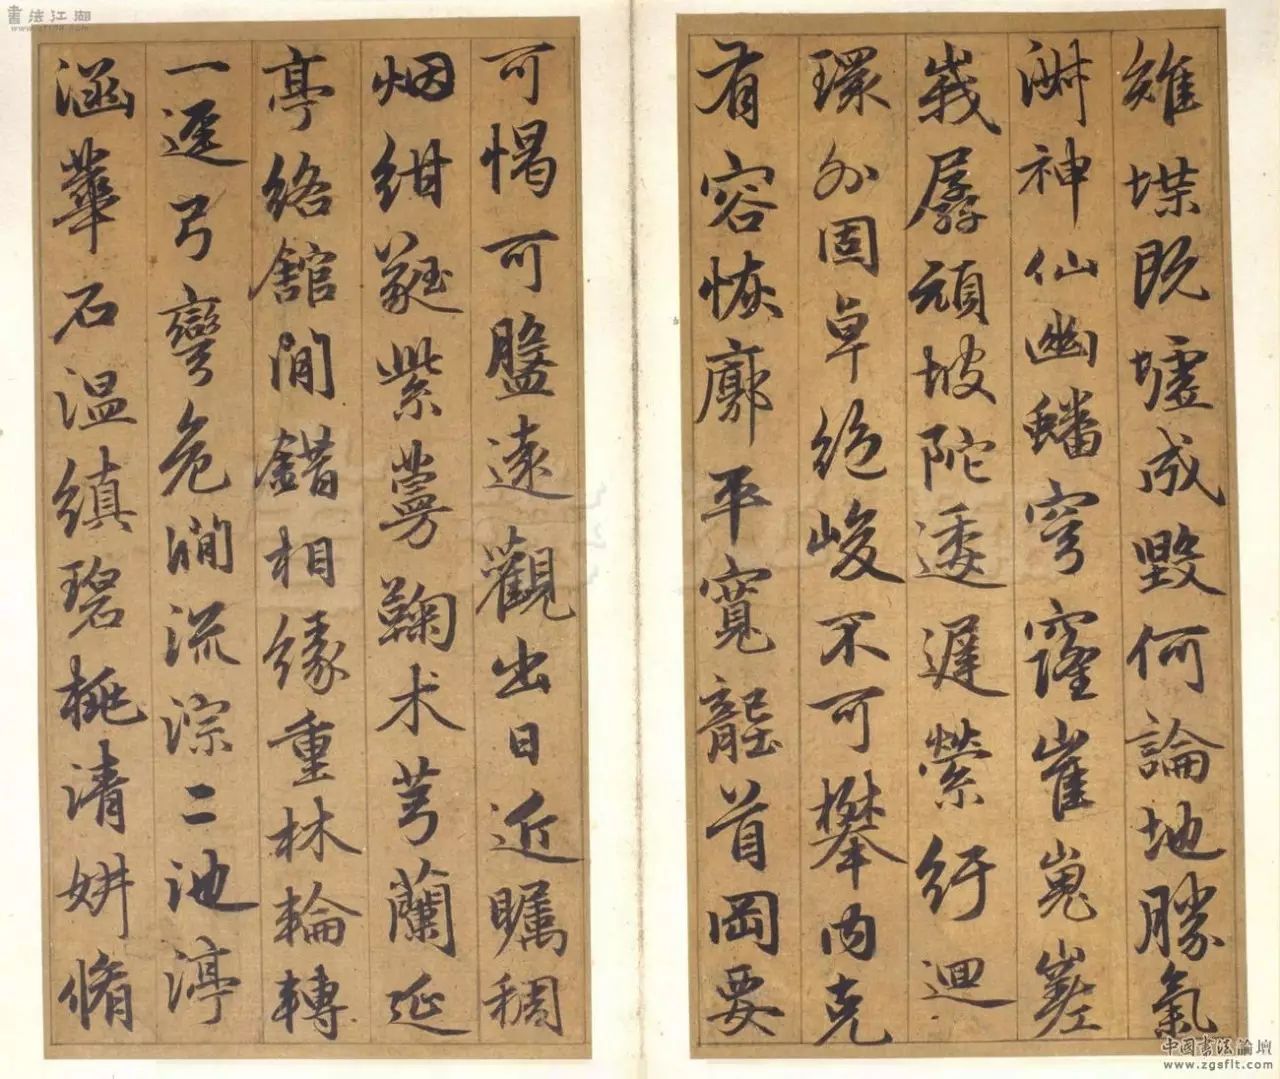 雉堞既墟成毀何論地勝氣
渊神仙幽蟠穹窿崔嵬嵯
峩孱頑坡陀逶遲縈紆迴
環外固卓絕峻不可攀内克
有容恢廓平寬龍首岡要
可愒可盤遠觀出日近矚稠
烟紺蕤紫蔓鞠术芎蘭延
亭絡館間錯相緣重林輪轉
一逕弓彎危澗流淙二池渟
涵華石温縝碧桃清妍脩
書法江湖
中國書法論壇
www.zgsflt.com